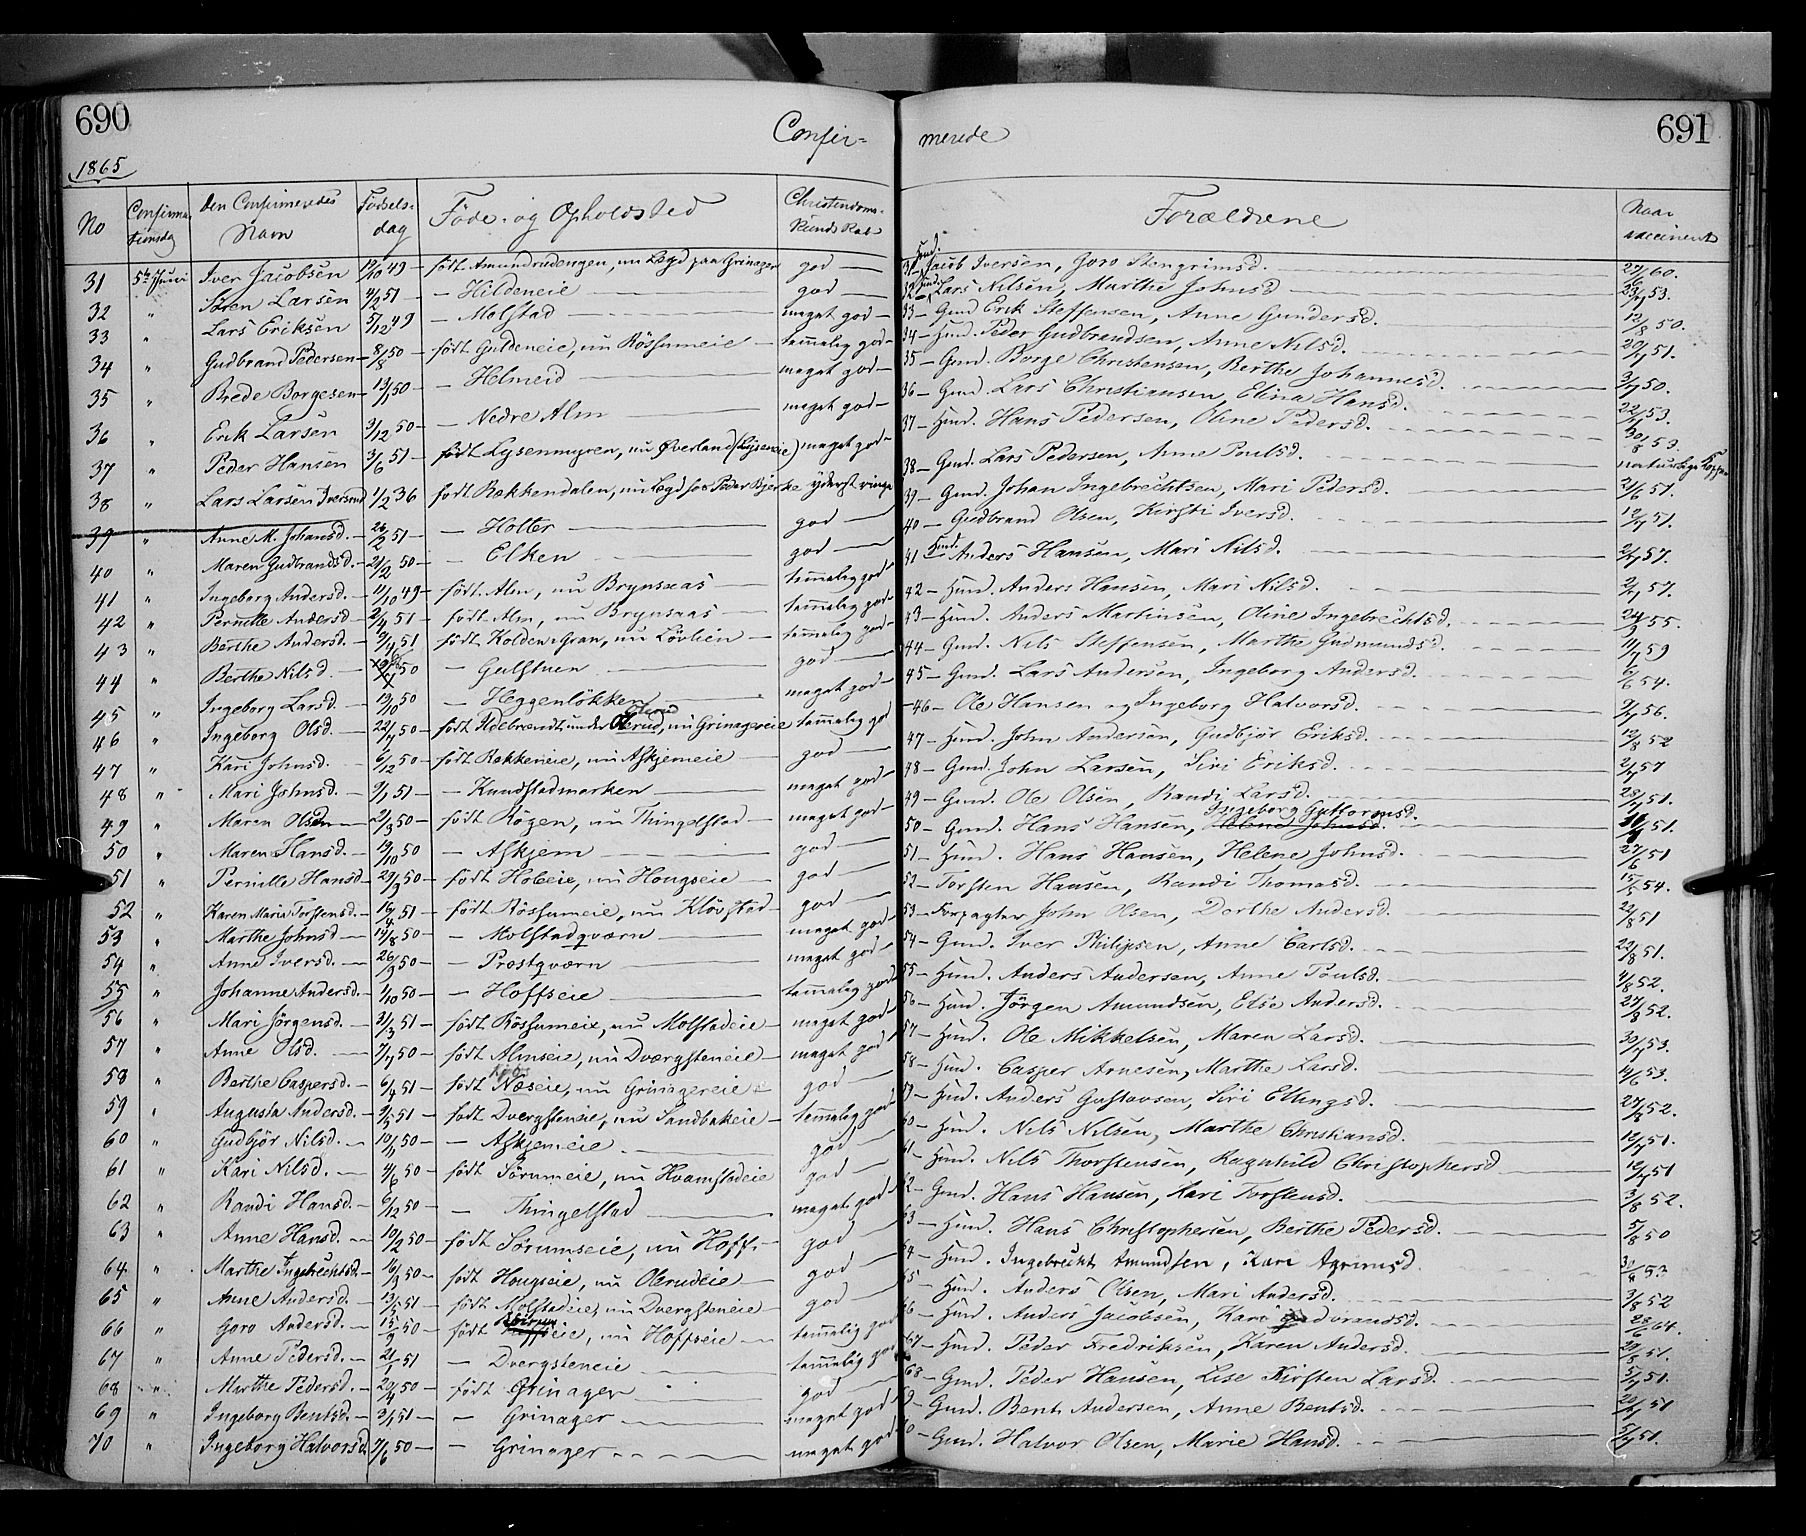 690
Confir-
merede
691
1865
No
Confirma
tionsdag
Den Confirmeredes
Navn
Fødsels-
dag
Føde- og Opholdsted
Christendoms-
Kundskab
Forældrene
Naar
vaccineret
31 5te Juni Iver Jacobsen 12/10 49 - født Amundrudengen, nu Lægd paa Grinager god
32 " Søren Larsen 4/2 51 - Hildeneie god
33 " Lars Eriksen 5/12 49 - Molstad meget god
34 " Gudbrand Pedersen 8/8 50 - født Guldeneie, nu Røssumeie temmelig god
35 " Brede Borgesen 13/1 50 - Helmeid meget god
36 " Erik Larsen 3/12 50 - Nedre Alm meget god
37 " Peder Hansen 3/6 51 - født Lysenmyren, nu Øverland (Lyseneie) meget god
38 " Lars Larsen Iversrud 1/2 36 født Bakkendalen, nu Lægd hos Peder Bjerke yderst ringe
39 " Anne M. Johansd. 26/2 51 - Holter god
40 " Maren Gudbrandsd. 21/2 50 - Elken god
41 " Ingeborg Andersd. 11/10 49 - født Alm, nu Brynsaas temmelig god
42 " Pernille Andersd. 2/4 51 - født Alm, nu Brynsaas temmelig god
43 " Berthe Andersd. 9/4 51 født Kolden Gran, nu Løvlien temmelig god
44 " Berthe Nilsd. 50 - Gulstuen god
45 " Ingeborg Larsd. 19/10 50 - Heggenløkken meget god
46 " Ingeborg Olsd. 22/7 50 - født Ildebrændt under Olerud, nu Grinagereie temmelig god
47 " Kari Johnsd. 6/12 50 - født Bakkeneie, nu Askjemeie god
48 " Mari Johnsd. 9/1 51 - Kundstadmarken meget god
49 " Maren Olsd. 21/3 50 - født Røgen, nu Thingelstad meget god
50 " Maren Hansd. 19/10 50 - Askjem god
51 " Pernille Hansd. 29/3 50 - født Holeie, nu Hougseie god
52 " Karen Maria Torstensd. 16/4 51 - født Røssumeie, nu Kløvstad god
53 " Marthe Johnsd 14/8 50 - Molstadqværn meget god
54 " Anne Iversd. 26/9 50 - Prestqværn meget god
55 " Johanne Andersd. 1/10 50 - Hoffseie temmelig god
56 " Mari Jørgensd. 31/3 51 - født Røssumeie, nu Molstadeie meget god
57 " Anne Olsd. 7/7 50 - født Almseie, nu Dvergsteneie meget god
58 " Berthe Caspersd. 6/4 51 født Næseie, nu Grinagereie god
59 " Augusta Andersd. 9/5 51 - født Dvergsteneie, nu Sandbakeie temmelig god
60 " Gudbjør Nilsd. 10/5 50 - Askjemeie god
61 " Kari Nilsd. 4/6 50 - født Sørumeie, nu Hvamstadeie god
62 " Randi Hansd. 6/12 50 - Thingelstad meget god
63 " Anne Hansd. 10/2 50 - født Sørumseie, nu Hoff god
64 " Marthe Ingebrechtsd. 16/9 50 - født Hougseie, nu Olerudeie god
65 " Anne Andersd. 13/5 51 - født Molstadeie, nu Dvergsteneie god
66 " Goro Andersd. 15/9 50 - født Hoffseie, nu Hoffseie temmelig god
67 " Anne Pedersd. 21/1 51 - Dvergsteneie temmelig god
68 " Marthe Pedersd. 20/4 50 - født Grinager god
69 " Ingeborg Bentsd. 3/1 51 - Grinager meget god
70 " Ingeborg Halvorsd. 7/6 50 - Grinager meget god
31 Hmd. Jacob Iversen, Goro Stengrimsd. 60.
32 Hmd. Lars Nilsen, Marthe Johnsd 53.
33 - Gmd Erik Steffensen, Anne Gundersd. 12/8 50.
34 - Hmd. Peder Gudbrandsen, Anne Nilsd. 20/7 51.
35 - Gmd. Borge Christensen, Berthe Johannesd. 3/7 50.
36 - Gmd. Lars Christiansen, Elina Hansd. 22/7 53.
37 - Hmd. Hans Pedersen, Oline Pedersd. 30/8 53.
38 - Gmd. Lars Pedersen, Anne Poulsd. naturlige Kopper
39 - Gmd. Johan Ingebrechtsen, Mari Pedersd. 21/6 51.
40 - Gudbrand Olsen, Kirsti Iversd. 12/7 51.
41 Hmd. Anders Hansen, Mari Nilsd. 2/7 57.
42 - Hmd. Anders Hansen, Mari Nilsd. 2/7 57.
43 - Hmd. Anders Martinsen, Oline Ingebrechtsd. 24/3 55.
44 - Gmd. Nils Steffensen, Marthe Gudmundsd. 59
45 - Gmd. Lars Andersen, Ingeborg Andersd. 54.
46 - Ole Hansen og Ingeborg Halvorsd. 3/7 56.
47 - Hmd. John Andersen, Gudbjør Eriksd. 12/8 52
48 - Gmd. John Larsen, Siri Eriksd. 2/7 57
49 - Gmd. Ole Olsen, Randi Larsd. 28/7 51.
50 - Gmd. Hans Hansen, Helene Johnsd. Ingeborg Guttormsd. 51.
51 - Hmd. Hans Hansen, Helene Johnsd. 27/6 51
52 - Torsten Hansen, Randi Thomasd. 15/5 54.
53 - Forpagter John Olsen, Dorthe Andersd. 22/8 51
54 - Gmd. Iver Philipsen, Anne Carlsd. 22/8 51.
55 - Hmd. Anders Andersen, Anne Poulsd. 4/8 52.
56 - Hmd. Jörgen Amundsen, Else Andersd. 27/8 52.
57 - Hmd. Ole Mikkelsen, Maren Larsd. 30/7 53.
58 - Hmd. Casper Arnesen, Marthe Larsd. 14/6 53.
59 - Hmd. Anders Gustavsen, Siri Ellingsd. 27/7 52.
60 - Hmd. Nils Nilsen, Marthe Christiansd. 12/7 51.
61 - Hmd. Nils Thorstensen, Ragnhild Christophersd 12/7 51
62 - Gmd. Hans Hansen, Kari Torstensd. 3/8 52.
63 - Hmd. Hans Christophersen, Berthe Pedersd. 5/8 50
64 - Hmd. Ingebrecht Amundsen, Kari Agrimsd. 53
65 - Hmd. Anders Olsen, Mari Andersd. 3/8 52
66 - Hmd. Anders Jacobsen, Kari Gudbrandsd. 28/6 64.
67 - Hmd. Peder Fredriksen, Karen Andersd. 29/8 51.
68 - Gmd. Peder Hansen, Lise Kirsten Larsd. 5/7 51.
69 - Gmd. Bent Andersen, Anne Bentsd. 51
70 - Gmd. Halvor Olsen, Marie Hansd. 5/7 51.